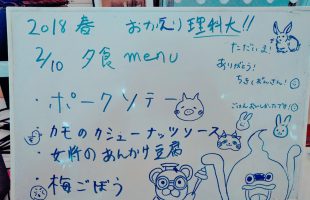 2018 春 おかえり 理科大!!
2/10 夕食 menu
ただいま!
ありがとう!
ごはんおいしかったです!
・ポークソテー
カモのカシューナッツソース
・女将のあんかけ豆腐
・梅ごぼう